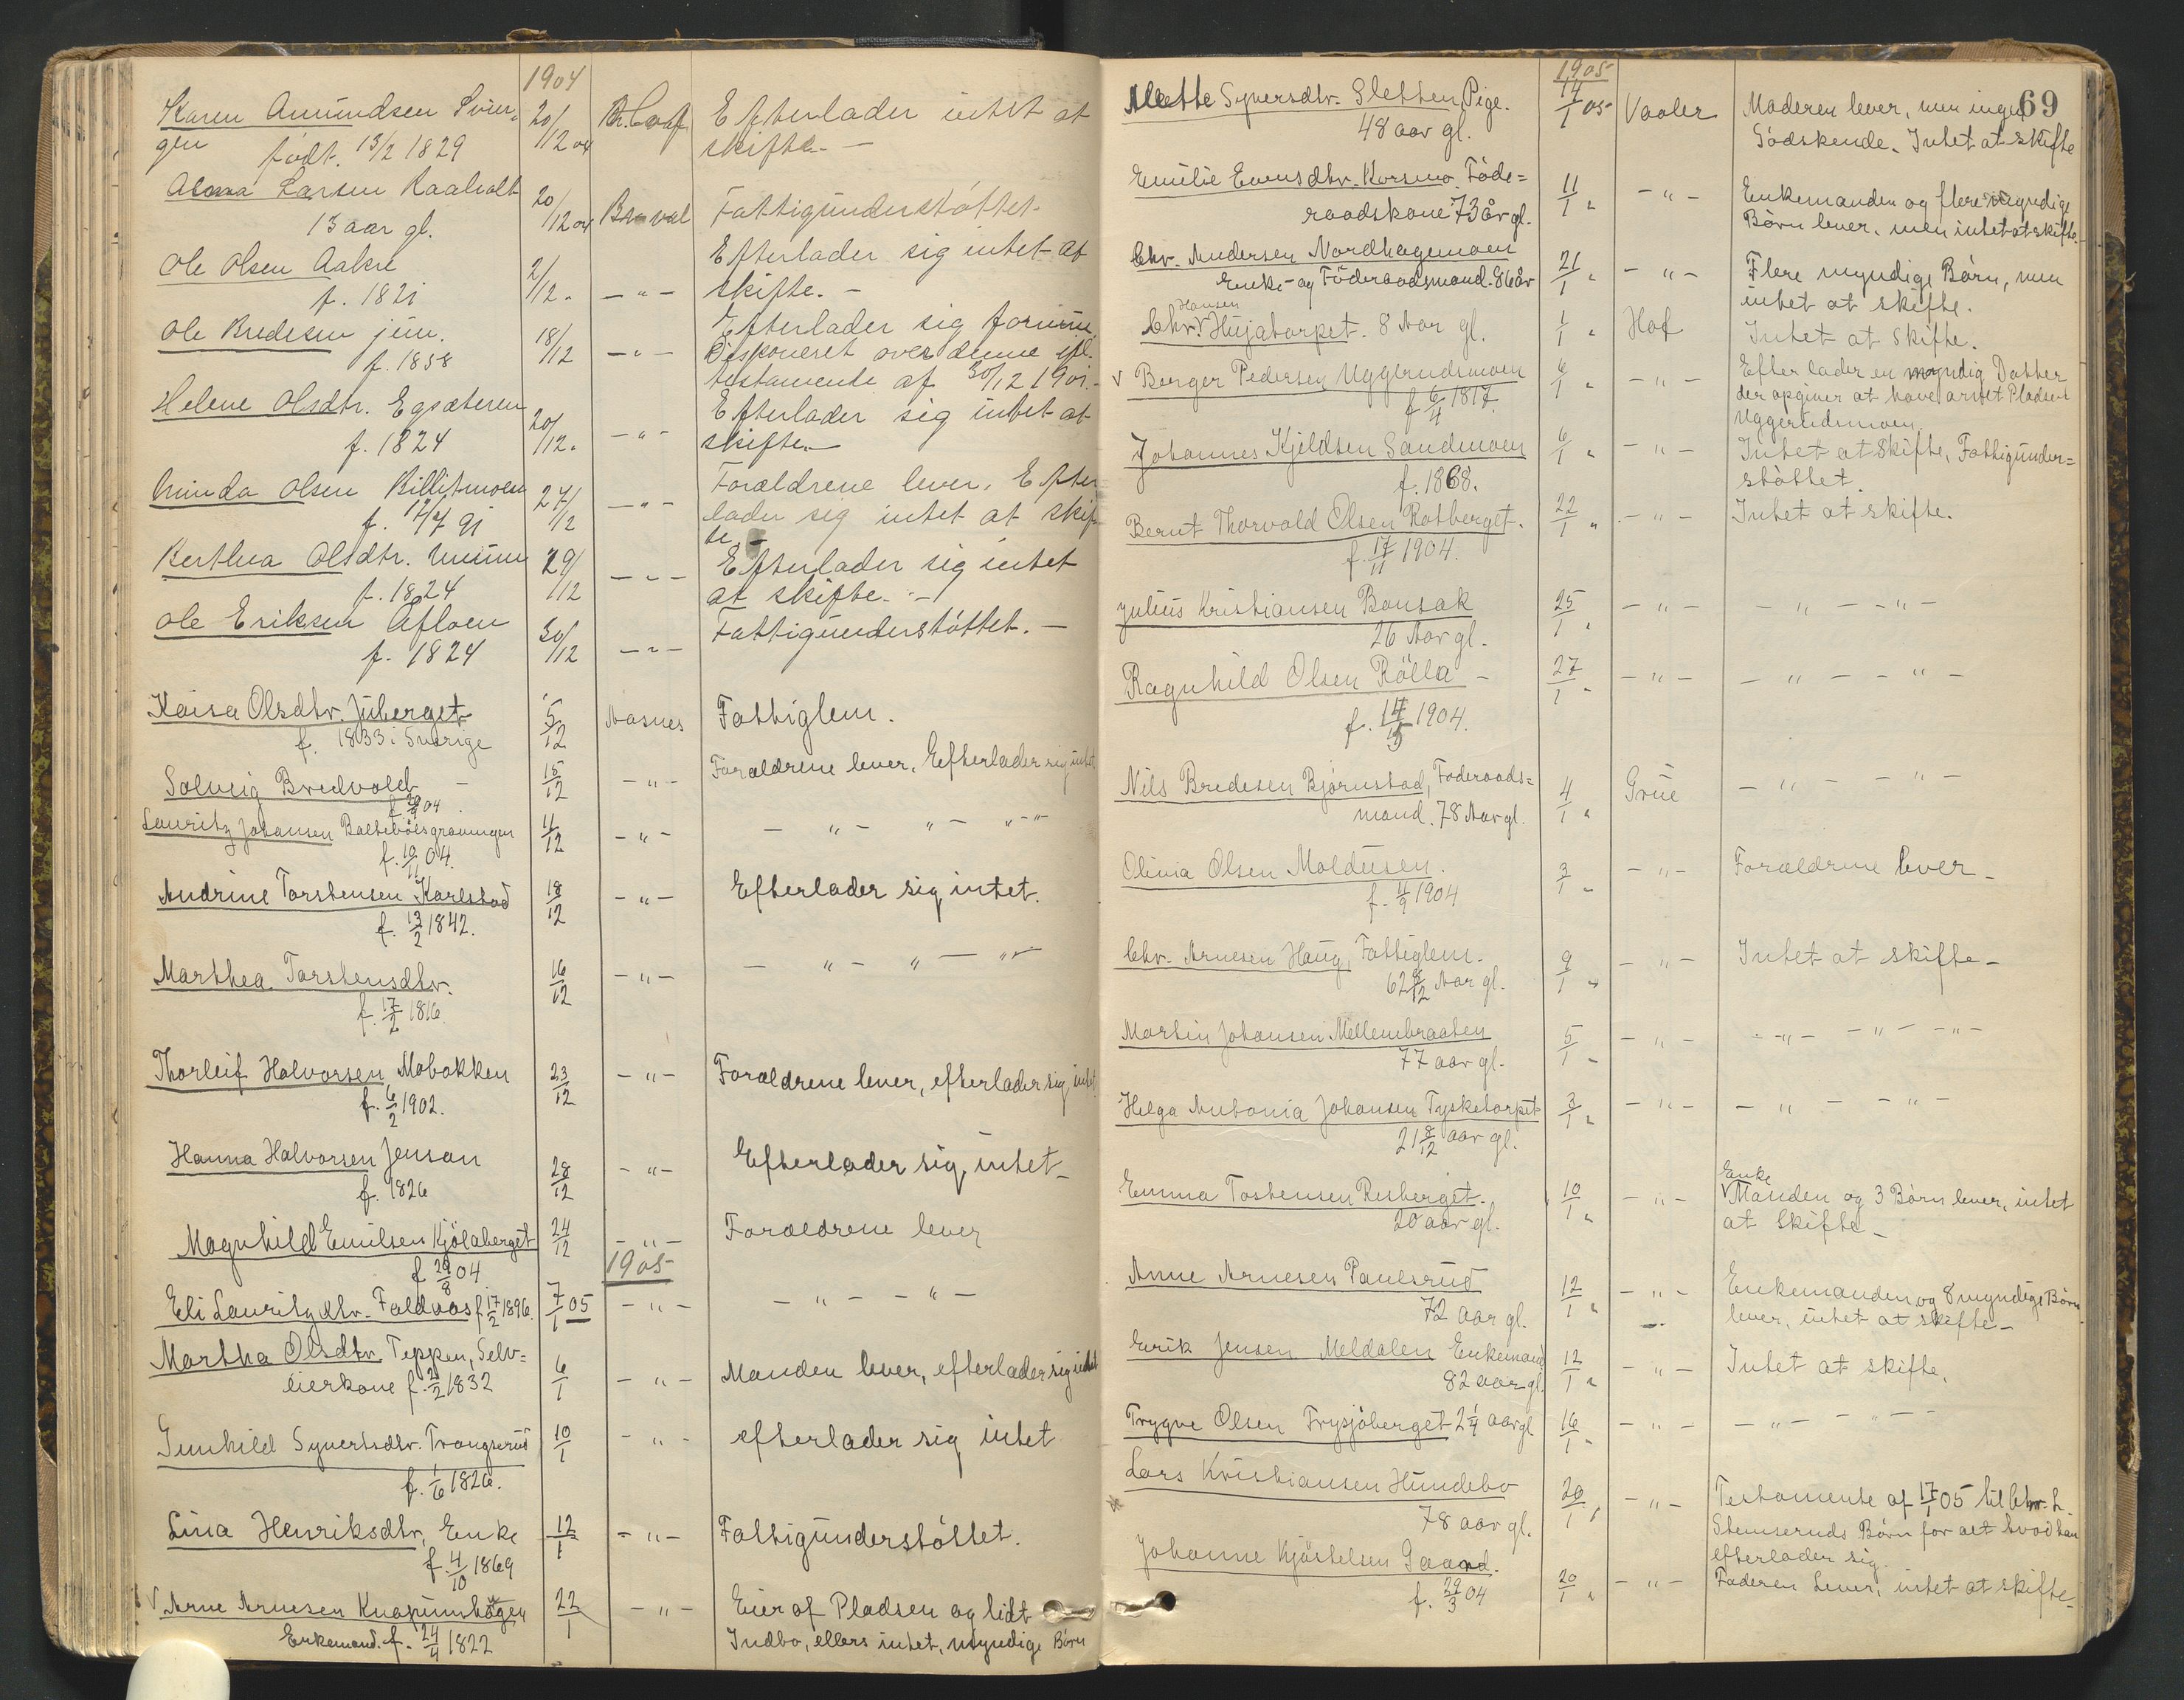 1904
Karen Amundsen Svin-
gen født. 13/2 1829 20/12 04 Efterlader intet at
skifte. -
Larsen Raaholt
13 aar gl. 20/12 04 Fattigunderstøttet.
Ole Olsen Aakre
f. 1821 2/12. - " - Efterlader sig intet at
skifte. -
Ole Bredesen jun.
f. 1858 18/12 - " - Efterlader sig formue.
Disponeret over denne ifl.
testamente af 30/12 1901.-
Helene Olsdtr. Egsæteren
f. 1824 20/12. - " - Efterlader sig intet at
skifte.-
Minda Olsen
f. 17/7 91 27/12 - " - Forældrene lever. Efter
lader sig intet at skif-
te. -
Berthea Olsdtr.
f. 1824 29/12 - " - Efterlader sig intet
at skifte. -
Ole Eriksen Afloen
f. 1824 30/12 - " - Fattigunderstøttet. -
Kaisa Olsdtr. Juberget
f. 1833 i Sverige 5/12 Aasnes Fattiglem.
Solveig Bredvold -
04. 15/12 - " - Forældrene lever, Efterlader sig intet
Lauritz Johansen Baltebölsgravningen
f. 19/11 04. 4/12 - " - - " - " - " - "
Andrine Torstensen Karlstad
f. 13/2 1842. 18/12 - " - Efterlader sig intet.
Marthea Torstensdtr.
f. 17/2 1816. 16/12 - " - - " - " - "
Thorleif Halvorsen Mobakken
f. 6/2 1902. 23/12 - " - Forældrene lever, efterlader sig intet
Hanna Halvorsen Jensan
f. 1826 28/12 - " - Efterlader sig intet -
Magnhild Emilsen Kjölaberget
f. 29/8 04. 24/12 - " - Forældrene lever
1905
Eli Lauritzdtr. Faldaas f. 17/2 1896. 7/1 05 - " - - " - - " -
Martha Olsdtr. Teppen, Selv=
eierkone f. 21/2 1832 6/1 - " - Manden lever, efterlader sig intet
Gunhild Syvertsdtr. Trangsrud
f. 1/6 1826. 10/1 - " - efterlader sig intet
Lina Henriksdtr, Enke
f. 4/10 1869 12/1 - " - Fattigunderstøttet.
V Arne Arnesen Knapumhögen
Enkemand. f. 24/4 1822 22/1 - " - Eier af Pladsen og lidt
Indbo, ellers intet, myndige Børn
69
1905
Alette Syversdtr. Sletten, Pige.
48 aar gl. 14/1 05 Vaaler Moderen lever, men ingen
Sødskende. Intet at skifte
Emilie Evensdtr. Korsmo. Føde=
raadskone 73 år gl. 11/1 " - " - Enkemanden og flere myndige
Børn lever, men intet at skifte.
Chr. Andersen Nordhagemoen
Enke- og Föderaadsmand. 86 år 21/1 " - " - Flere myndige Børn, men
intet at skifte.
Hansen
Chr. V Hujatorpet. 8 Aar gl. 1/1 " Hof Intet at skifte.
V Berger Pedersen Uggerudsmoen
f 6/4 1817. 6/1 " - " - Efterlader en myndig Datter
der opgiver at have arvet Pladsen
Uggerudsmoen.
Johannes Kjeldsen Sandmoen
f. 1868. 6/1 " - " - Intet at skifte, Fattigunder=
støttet.
Bernt Thorvald Olsen Rotberget.
f. 17/11 1904. 22/1 " - " - Intet at skifte.
Julius Kristiansen Bonsak
26 Aar gl. 25/1 " - " - - " - - " -
Ragnhild Olsen Rölla -
1904. 27/1 " - " - - " - - " -
Nils Bredesen Bjørnstad, Føderaads=
mand. 78 Aar gl. 4/1 " Grue - " - - " -
Olivia Olsen Moldusen.
f. 4/9 1904 3/1 " - " - Forældrene lever -
Chr. Arnesen Haug, Fattiglem.
62 8/12 Aar gl. 9/1 " - " - Intet at skifte -
Martin Johansen Mellembraaten
77 aar gl. 5/1 " - " - - " - - " - - " -
Helga Antonia Johansen Tysketorpet
21 8/12 aar gl. 3/1 " - " - - " - - " -
Emma Tostensen Risberget.
20 aar gl. 10/1 " - " - Enke
V Manden og 3 Børn lever, intet
at skifte -
Anne Arnesen Paulsrud
72 aar gl. 12/1 " - " - Enkemanden og 8 myndige Børn
lever, intet at skifte -
Erik Jensen Meldalen Enkemand
82 aar gl. 12/1 " - " - Intet at skifte.
Trygve Olsen Frysjöberget 2 1/4 aar gl 16/1 " - " - - " - - " -
Lars Kristiansen Hundebo
78 aar gl. 20/1 " - " - Testamente af 17/1 05 til Chr. L.
Stemseruds Børn for alt hvad han
efterlader sig.
Johanne Kjöstelsen Gaard.
f. 29/3 04 20/1 " - " - Faderen lever, intet at skifte -